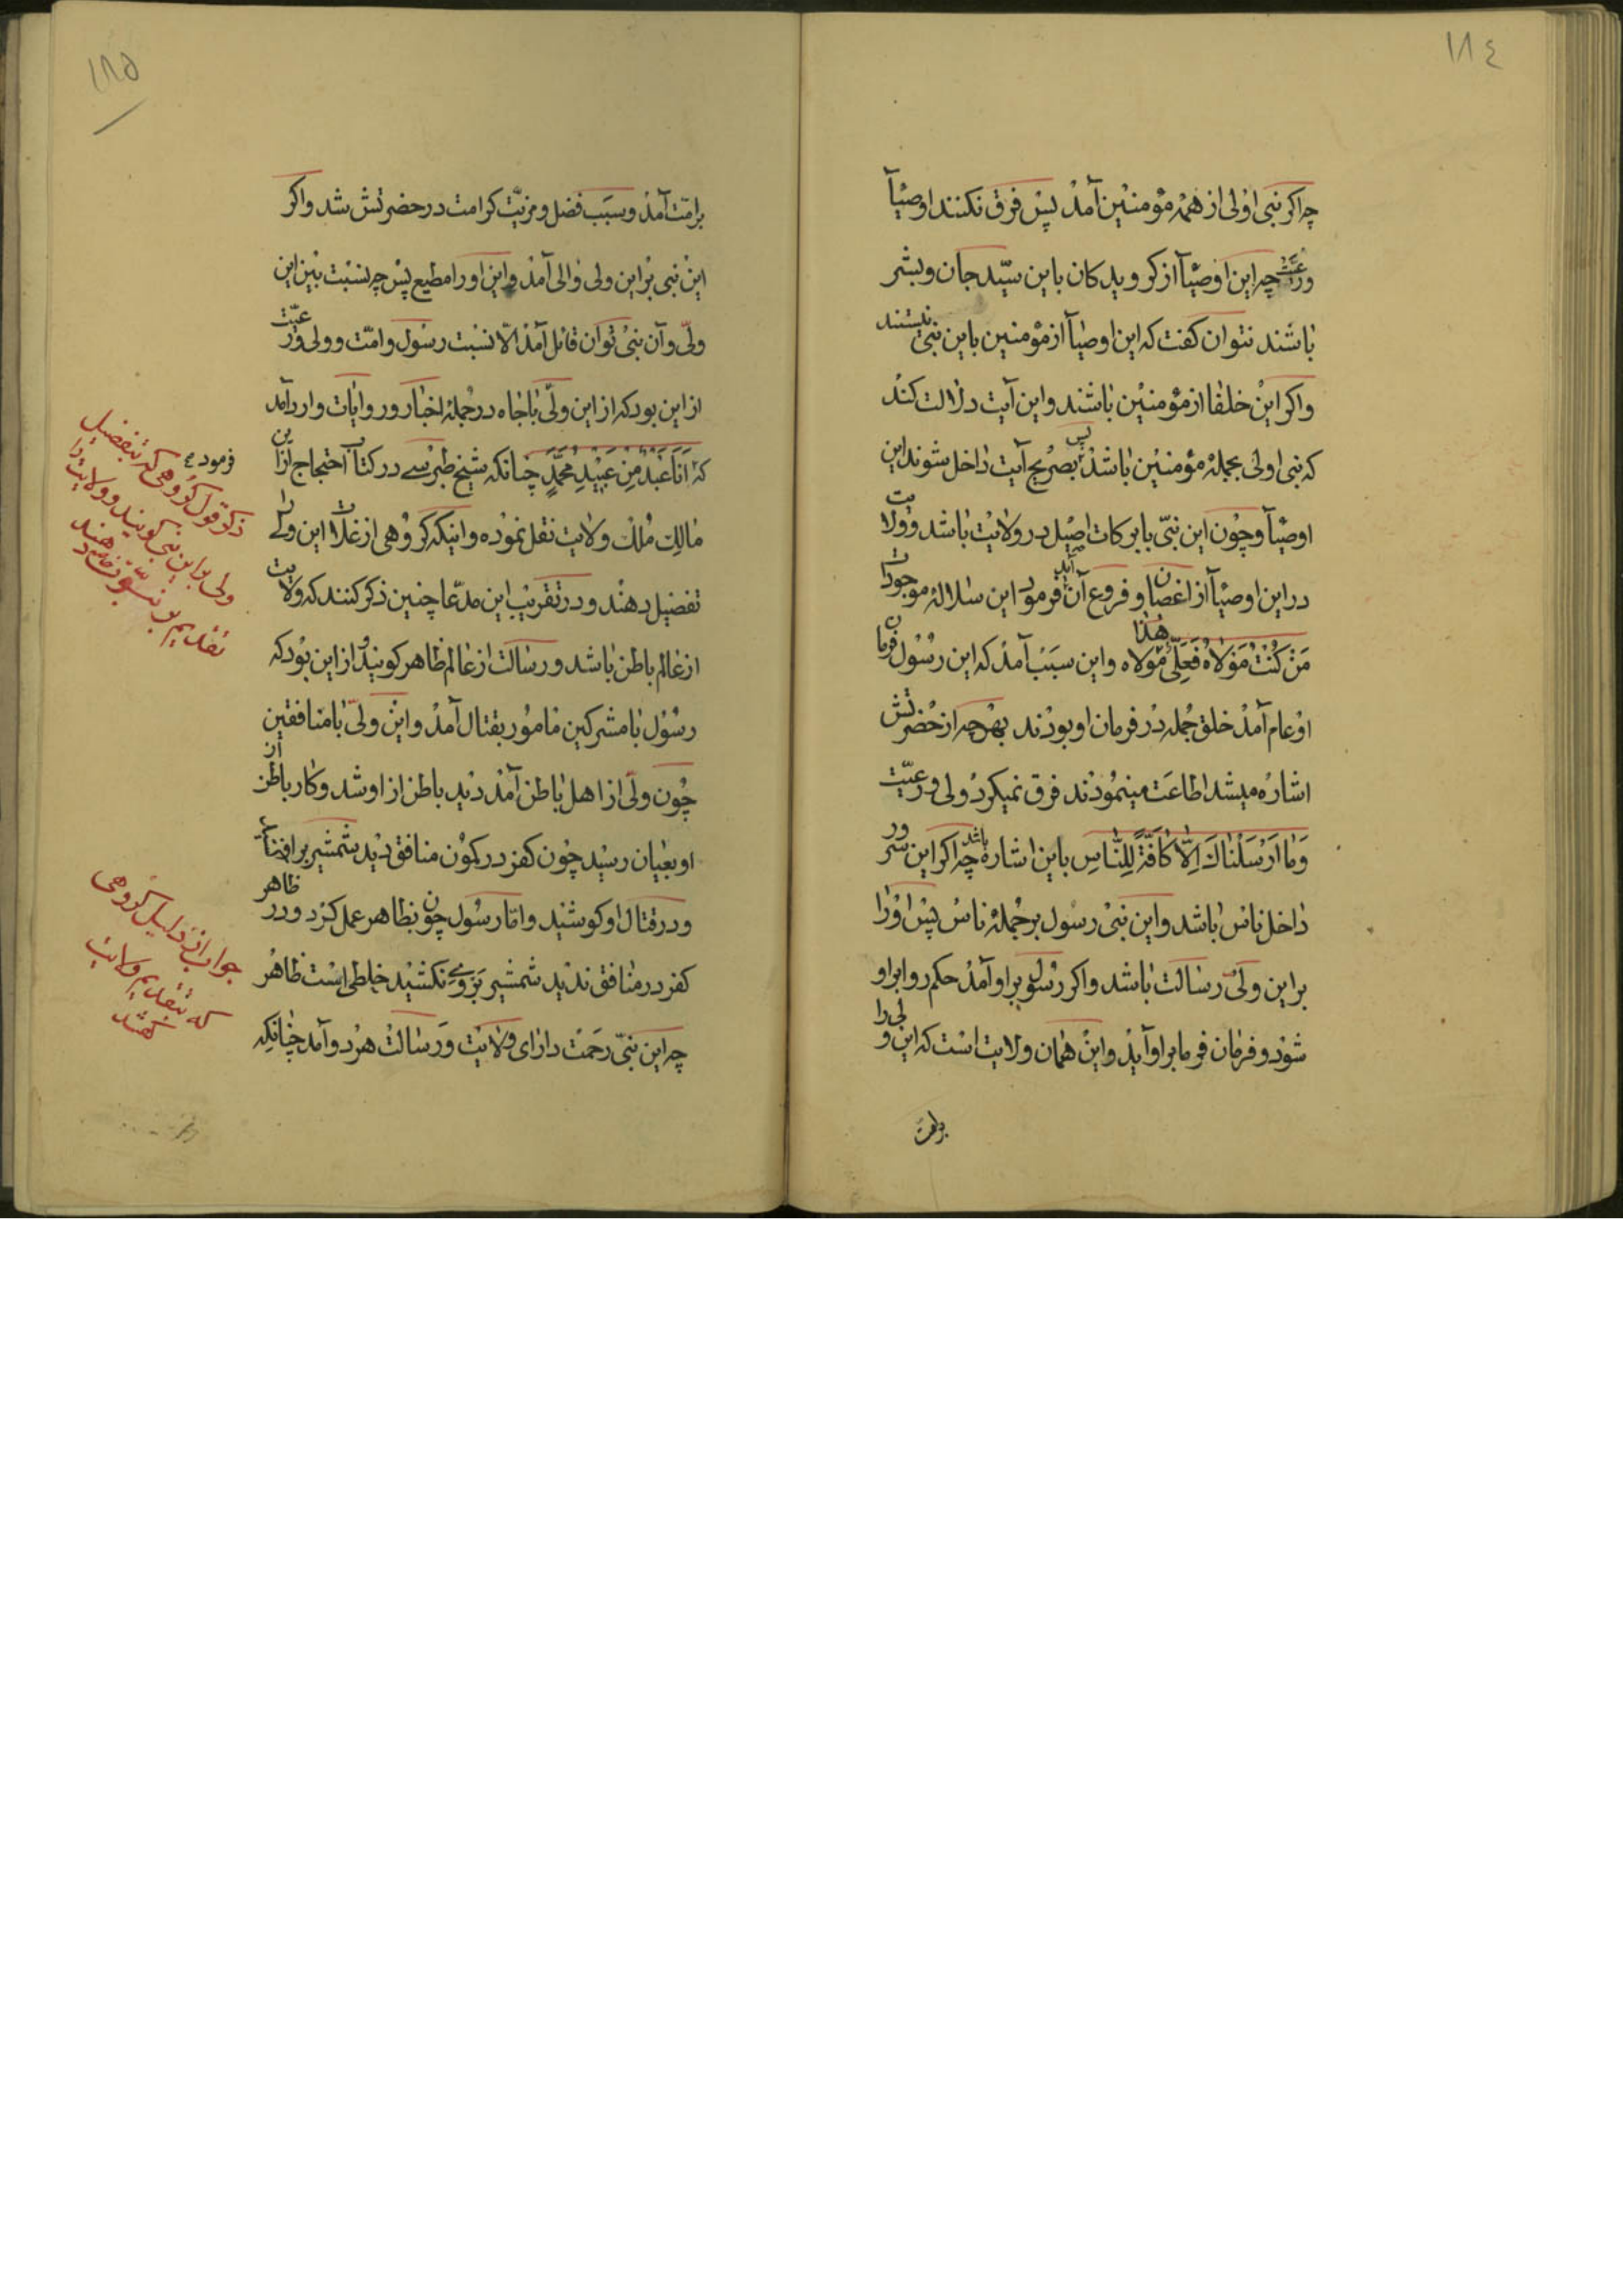 ١٨٤
چه اکر نبی اولی از همه مؤمنین آمد پس فرق نکنند اوصیآ
ورعیّت چه این اوصیآ از کرویدکان باین سیّد جان و بشر
باشند نتوان کفت که این اوصیآ از مؤمنین باین نبی نیستند
واکر این خلفا از مؤمنین باشند و این آیت دلالت کند
که نبی اولی بجمله مؤمنین باشد پس بصریح آیت داخل شوند این
اوصیآ و چون این نبی بابرکات اصیل در ولایت باشد و ولایت
در این اوصیآ از اغصان و فروع آن آید فرمود این سلاله موجودات
مَنْ كُنْتُ مَوْلاهُ فَعَلِيٌّ هٰذا مَوْلاه و این سبب آمد که این رسول فرمان
او عام آمد خلق جمله در فرمان او بودند بهرچه از حضرتش
اشاره میشد اطاعت مینمودند فرق نمیکرد ولی و رعیّت
وَمٰا اَرْسَلْنٰاكَ اِلّٰا كٰافَّةً لِلنّٰاسِ باین اشاره باشد چه اکر این سرور
داخل ناس باشد و این نبی رسول بر جمله ناس پس او را
بر این ولیّ رسالت باشد واکر رسول بر او آمد حکم روا بر او
شود و فرمان فرما بر او آید و این همان ولایت است که این ولی را
برامت
١٨٥
برامّت آمد و سبب فضل و مزیّت کرامت در حضرتش شد واکر
این نبی بر این ولی والی آمد و این او را مطیع پس چه نسبت بین این
ولیّ و آن نبی توان قائل آمد الّا نسبت رسول و امّت و ولی و رعیّت
از این بود که از این ولیّ باجاه در جمله اخبار و روایات وارد آمد
که اَنَا عَبْدٌ مِنْ عَبيدِ مُحَمَّدٍ چنانکه شیخ طبرسے در کتاب احتجاج از این
مالک ملک ولایت نقل نموده و اینکه کروهی از غلات این ولی را
تفضیل دهند و در تقریب این مدّعا چنین ذکر کنند که ولایت
از عالم باطن باشد و رسالت از عالم ظاهر کویند از این بود که
رسول با مشرکین مامور بقتال آمد و این ولیّ با منافقین
چون ولیّ از اهل باطن آمد دید باطن از او شد و کار باطن از
او بعیان رسید چون کفر در کمون منافق دید شمشیر برافراخت
و در قتال او کوشید و امّا رسول چون بظاهر عمل کرد و در ظاهر
کفر در منافق ندید شمشیر بروے نکشید خلطی است ظاهر
چه این نبی رحمت دارای ولایت و رسالت هر دو آمد چنانکه
فرموده
ذکر قول کروهی که تفضیل
ولی بر این نبی کویند و ولایت را
تقدیم بر نبوّت دهند
جواب از دلیل کروهی
که بتقدیم ولایت